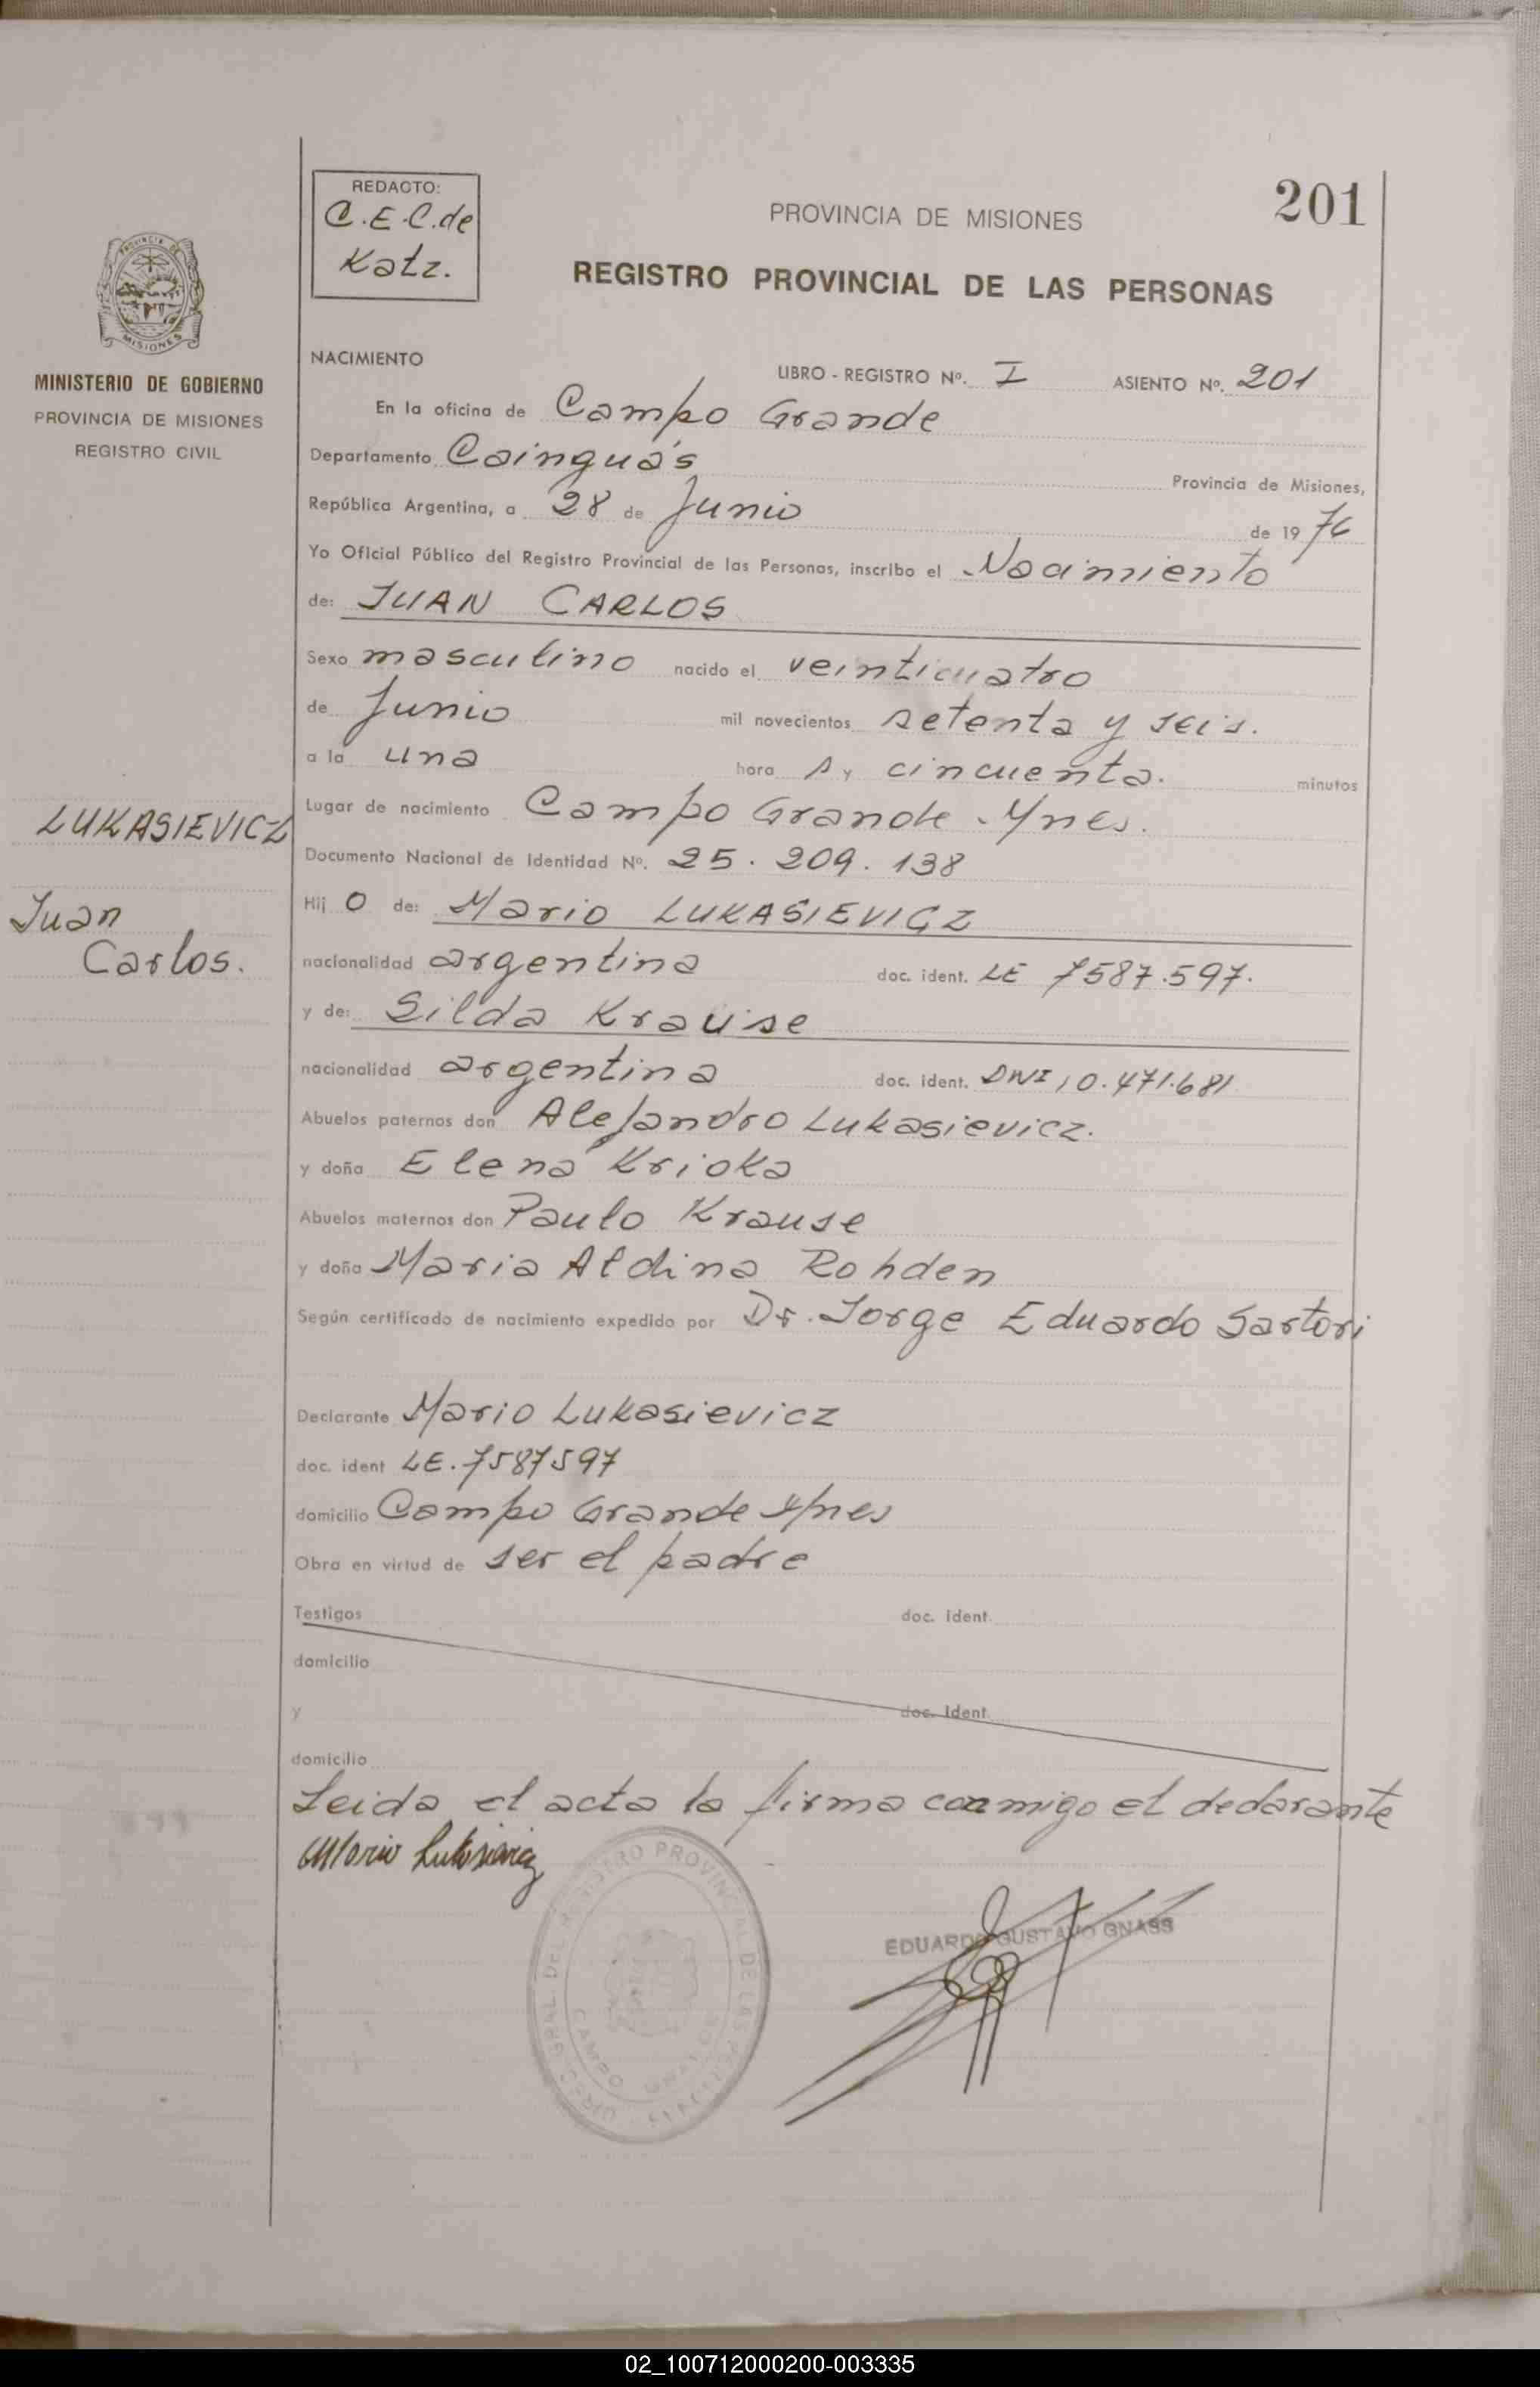 REDACTO:
C.E.C.de
Katz.
PROVINCIA DE MISIONES
201
REGISTRO PROVINCIAL DE LAS PERSONAS
PROVINCIA DE
MISIONES
MINISTERIO DE GOBIERNO
PROVINCIA DE MISIONES
REGISTRO CIVIL
NACIMIENTO
LIBRO - REGISTRO Nº. I ASIENTO Nº. 201
En la oficina de Campo Grande
Departamento Cainguás Provincia de Misiones,
República Argentina, a 28 de Junio de 1976
Yo Oficial Público del Registro Provincial de las Personas, inscribo el Nacimiento
de: JUAN CARLOS
Sexo masculino nacido el veinticuatro
de Junio mil novecientos setenta y seis.
a la una hora s y cincuenta. minutos
Lugar de nacimiento Campo Grande Mnes.
Documento Nacional de Identidad Nº. 25.209.138
LUKASIEVICZ
Juan
Carlos.
Hij o de: Mario LUKASIEVICZ
nacionalidad argentina doc. ident. LE 7587.597.
y de: Silda Krause
nacionalidad argentina doc. ident. DNI 10.471.681
Abuelos paternos don Alejandro Lukasievicz.
y doña Elena Krioka
Abuelos maternos don Paulo Krause
y doña Maria Aldina Rohden
Según certificado de nacimiento expedido por Dr. Jorge Eduardo Sartori
Declarante Mario Lukasievicz
doc. ident LE.7587597
domicilio Campo Grande Mnes
Obra en virtud de ser el padre
Testigos doc. ident.
domicilio
y doc. ident.
domicilio
Leida el acta la firma conmigo el declarante
Mario Lukasievicz
DIREC. GRAL. DEL REGISTRO PROVINCIAL DE LAS PERSONAS
CAMPO GRANDE
EDUARDO GUSTAVO GNASS
02_100712000200-003335